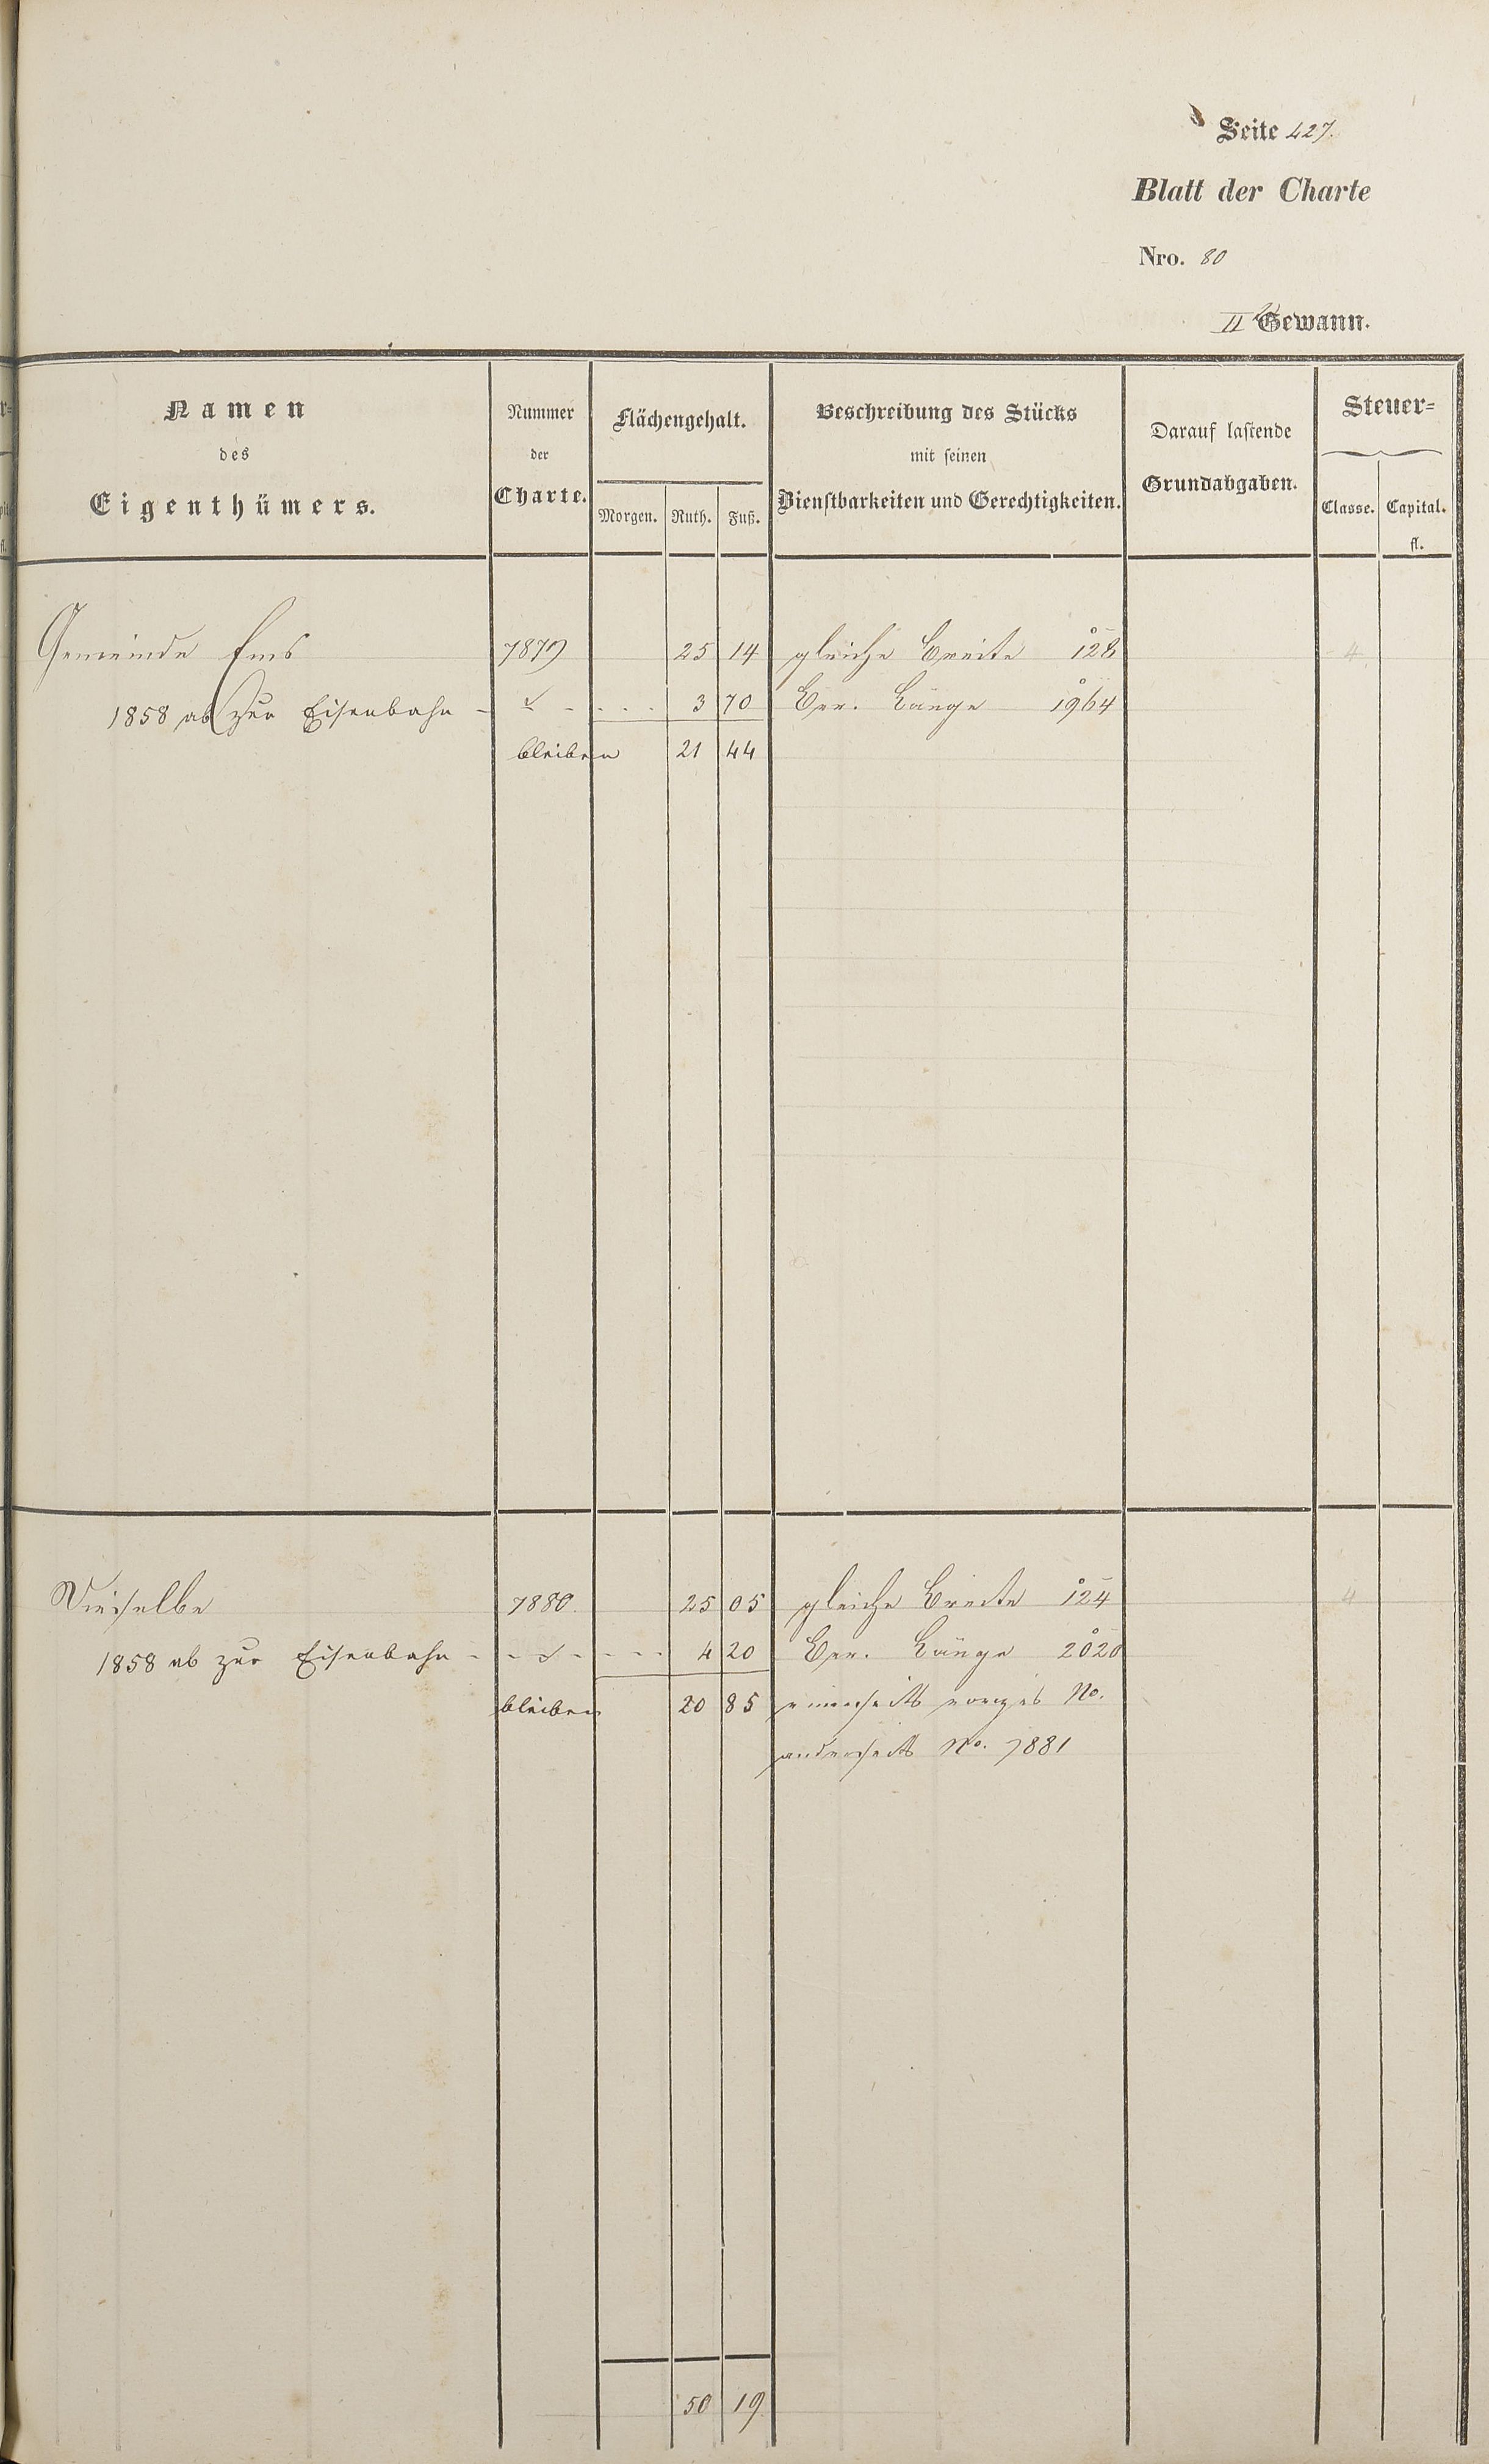 Seite 427.
Blatt der Charte
Nro. 80
II Gewann.
Namen des Eigenthümers.
Nummer der Charte.
Flächengehalt.
Morgen. Ruth. Fuß.
Beschreibung des Stücks mit seinen Dienstbarkeiten und Gerechtigkeiten.
Darauf lastende Grundabgaben.
Steuer=
Classe. Capital.
fl.
Gemeinde Ems 7879 25 14 gleiche Breite 1°28 4
1858 ab zur Eisenbahn - - . . . 3 70 Ber. Länge 19°64
bleiben 21 44
Dieselbe 7880. 25 05 gleiche Breite 1°24 4
1858 ab zur Eisenbahn - - - - - - 4 20 Ber. Länge 20°20
bleiben 20 85 einerseits voriges No.
anderseits No. 7881
50 19